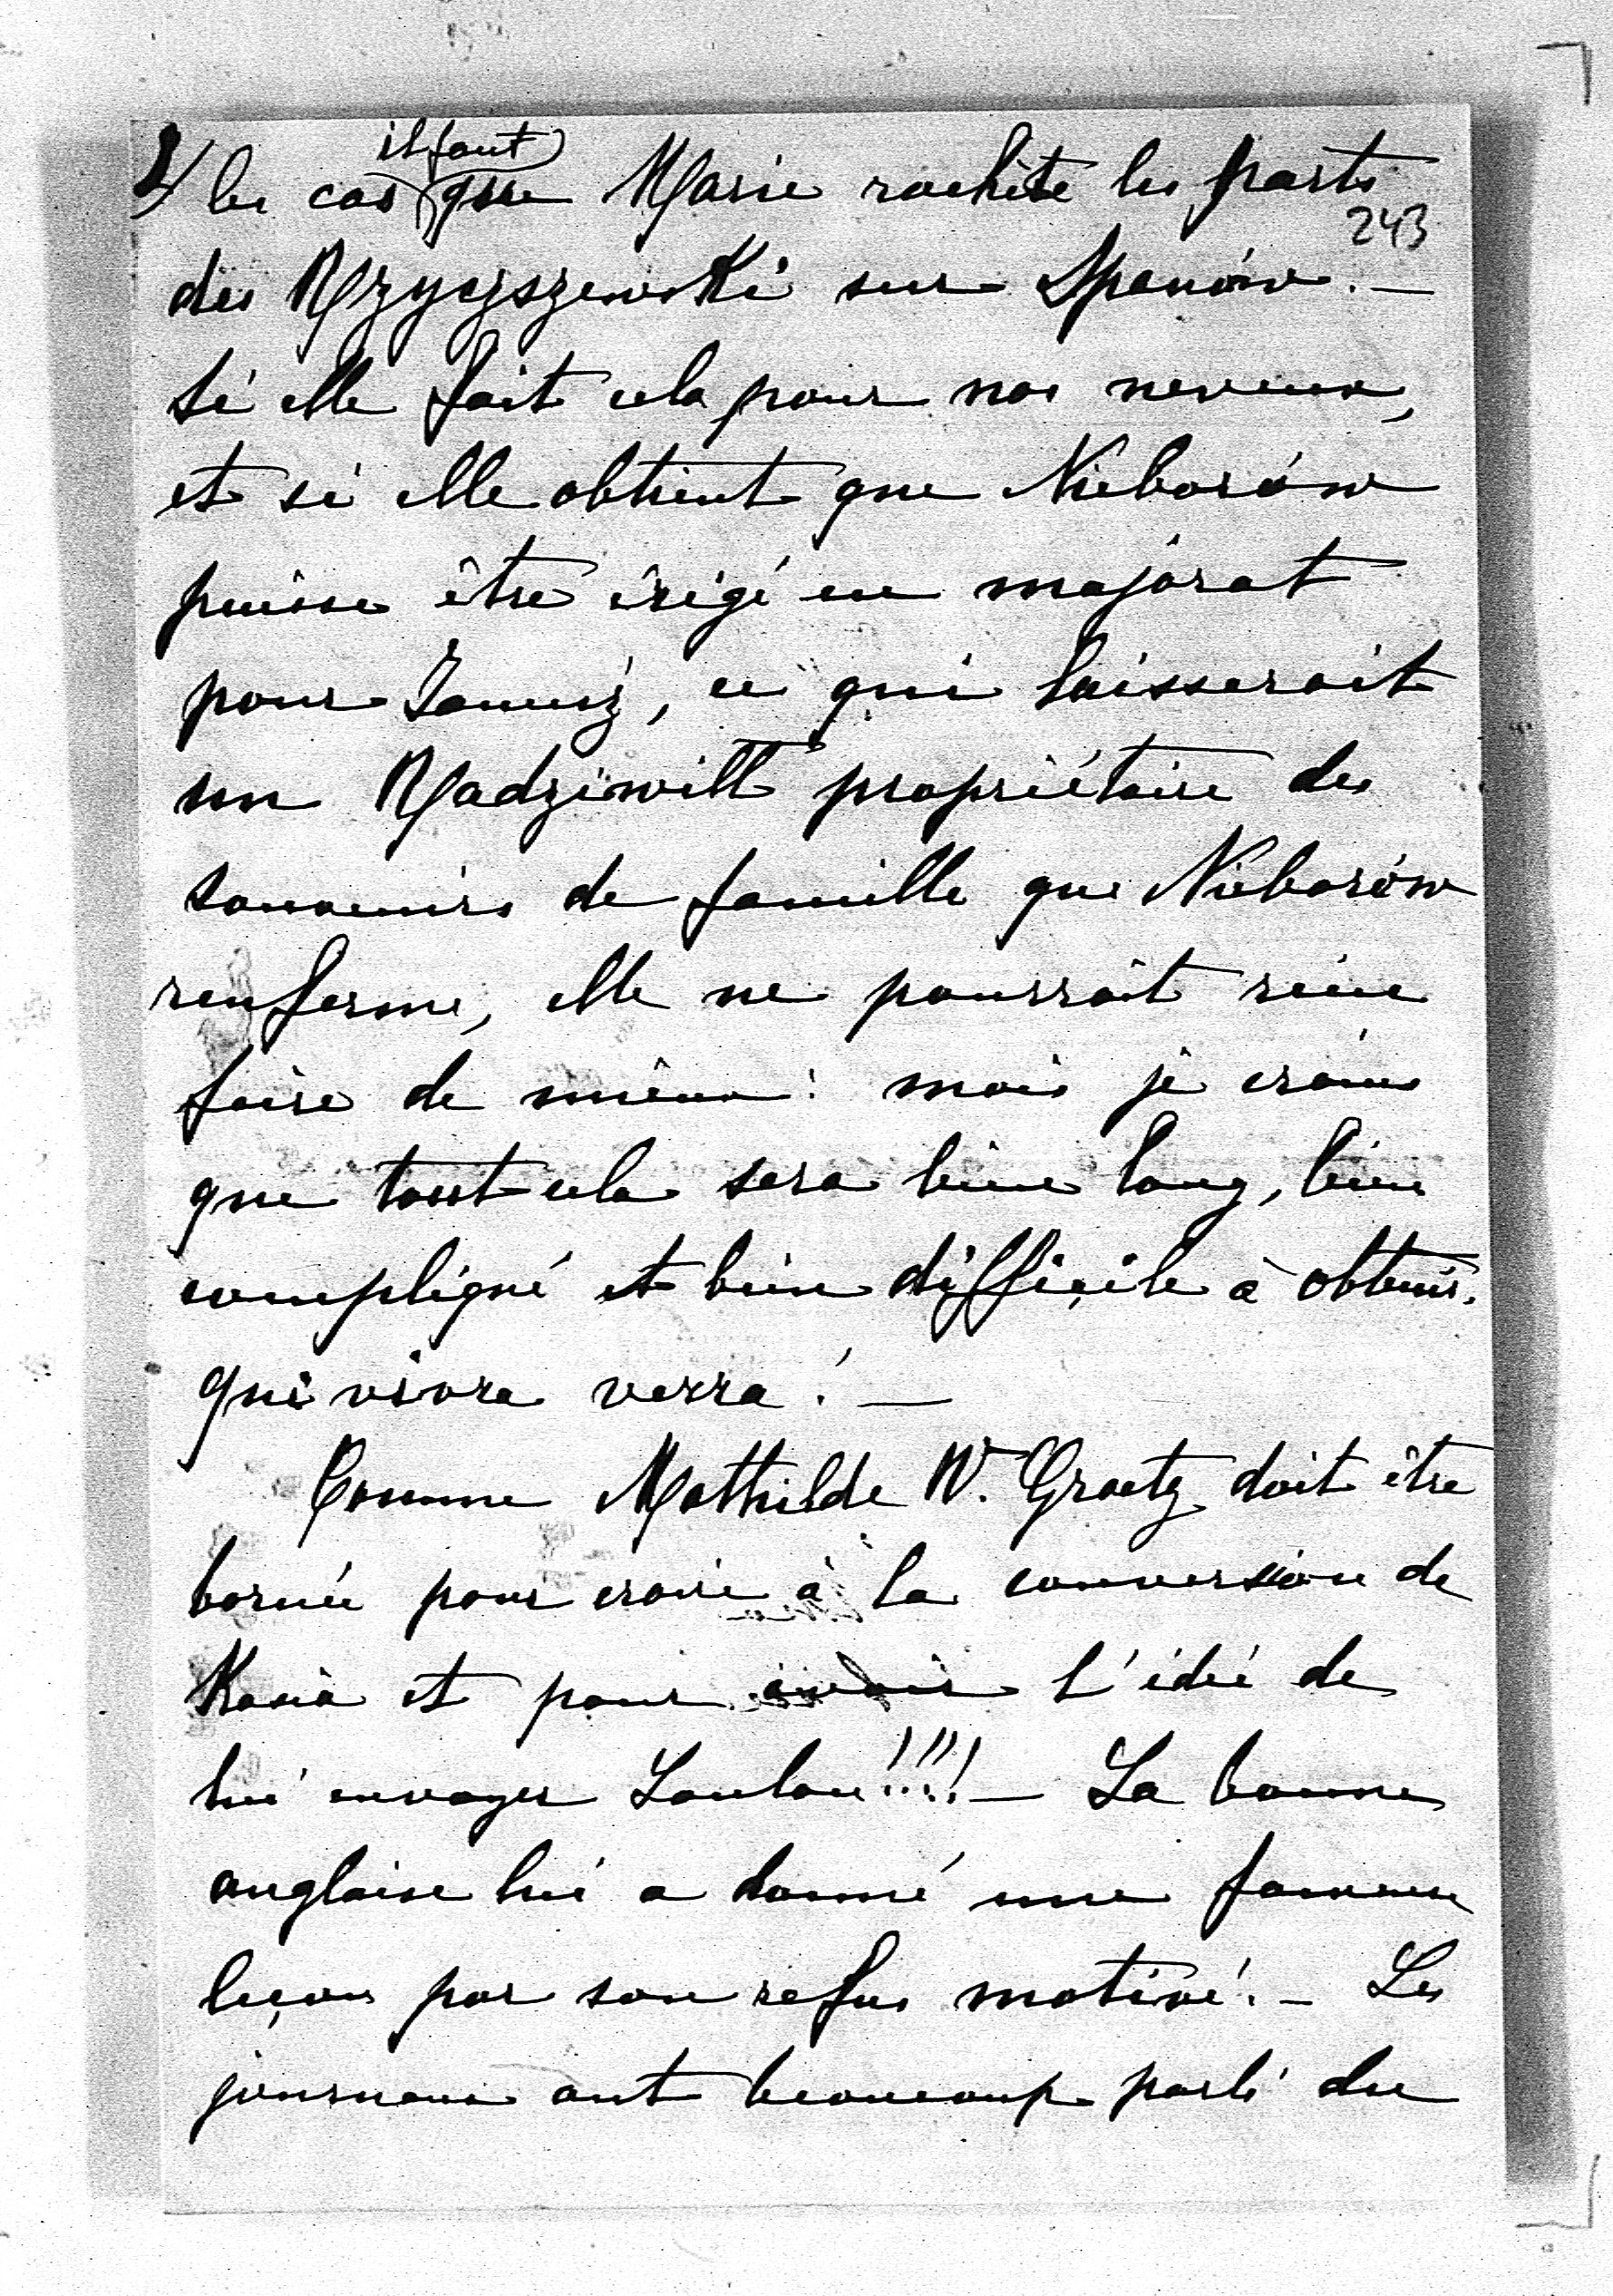 2/ les cas il faut que Marie rachète les parts
243
des Rzyszczewski sur Spanów. —
Si elle fait cela pour nos neveux,
et si elle obtient que Nieborów
puisse être érigé en majorat
pour Janusz, ce qui laisserait
un Radziwill propriétaire des
souvenirs de famille que Nieborów
renferme, elle ne pourrait rien
faire de mieux! mais je crains
que tout cela sera bien long, bien
compliqué et bien difficile à obtenir.
qui vivra verra! —
Comme Mathilde W. Graetz doit être
bornée pour croire à la conversion de
Kasia et pour avoir l'idée de
lui envoyer Loulou!!!! — La bonne
anglaise lui a donné une fameuse
leçon par son refus motivé! — Les
journaux ont beaucoup parlé du